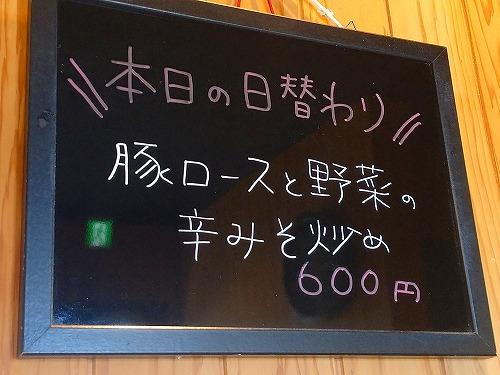 \\本日の日替わり//
豚ロースと野菜の
辛みそ炒め
600円